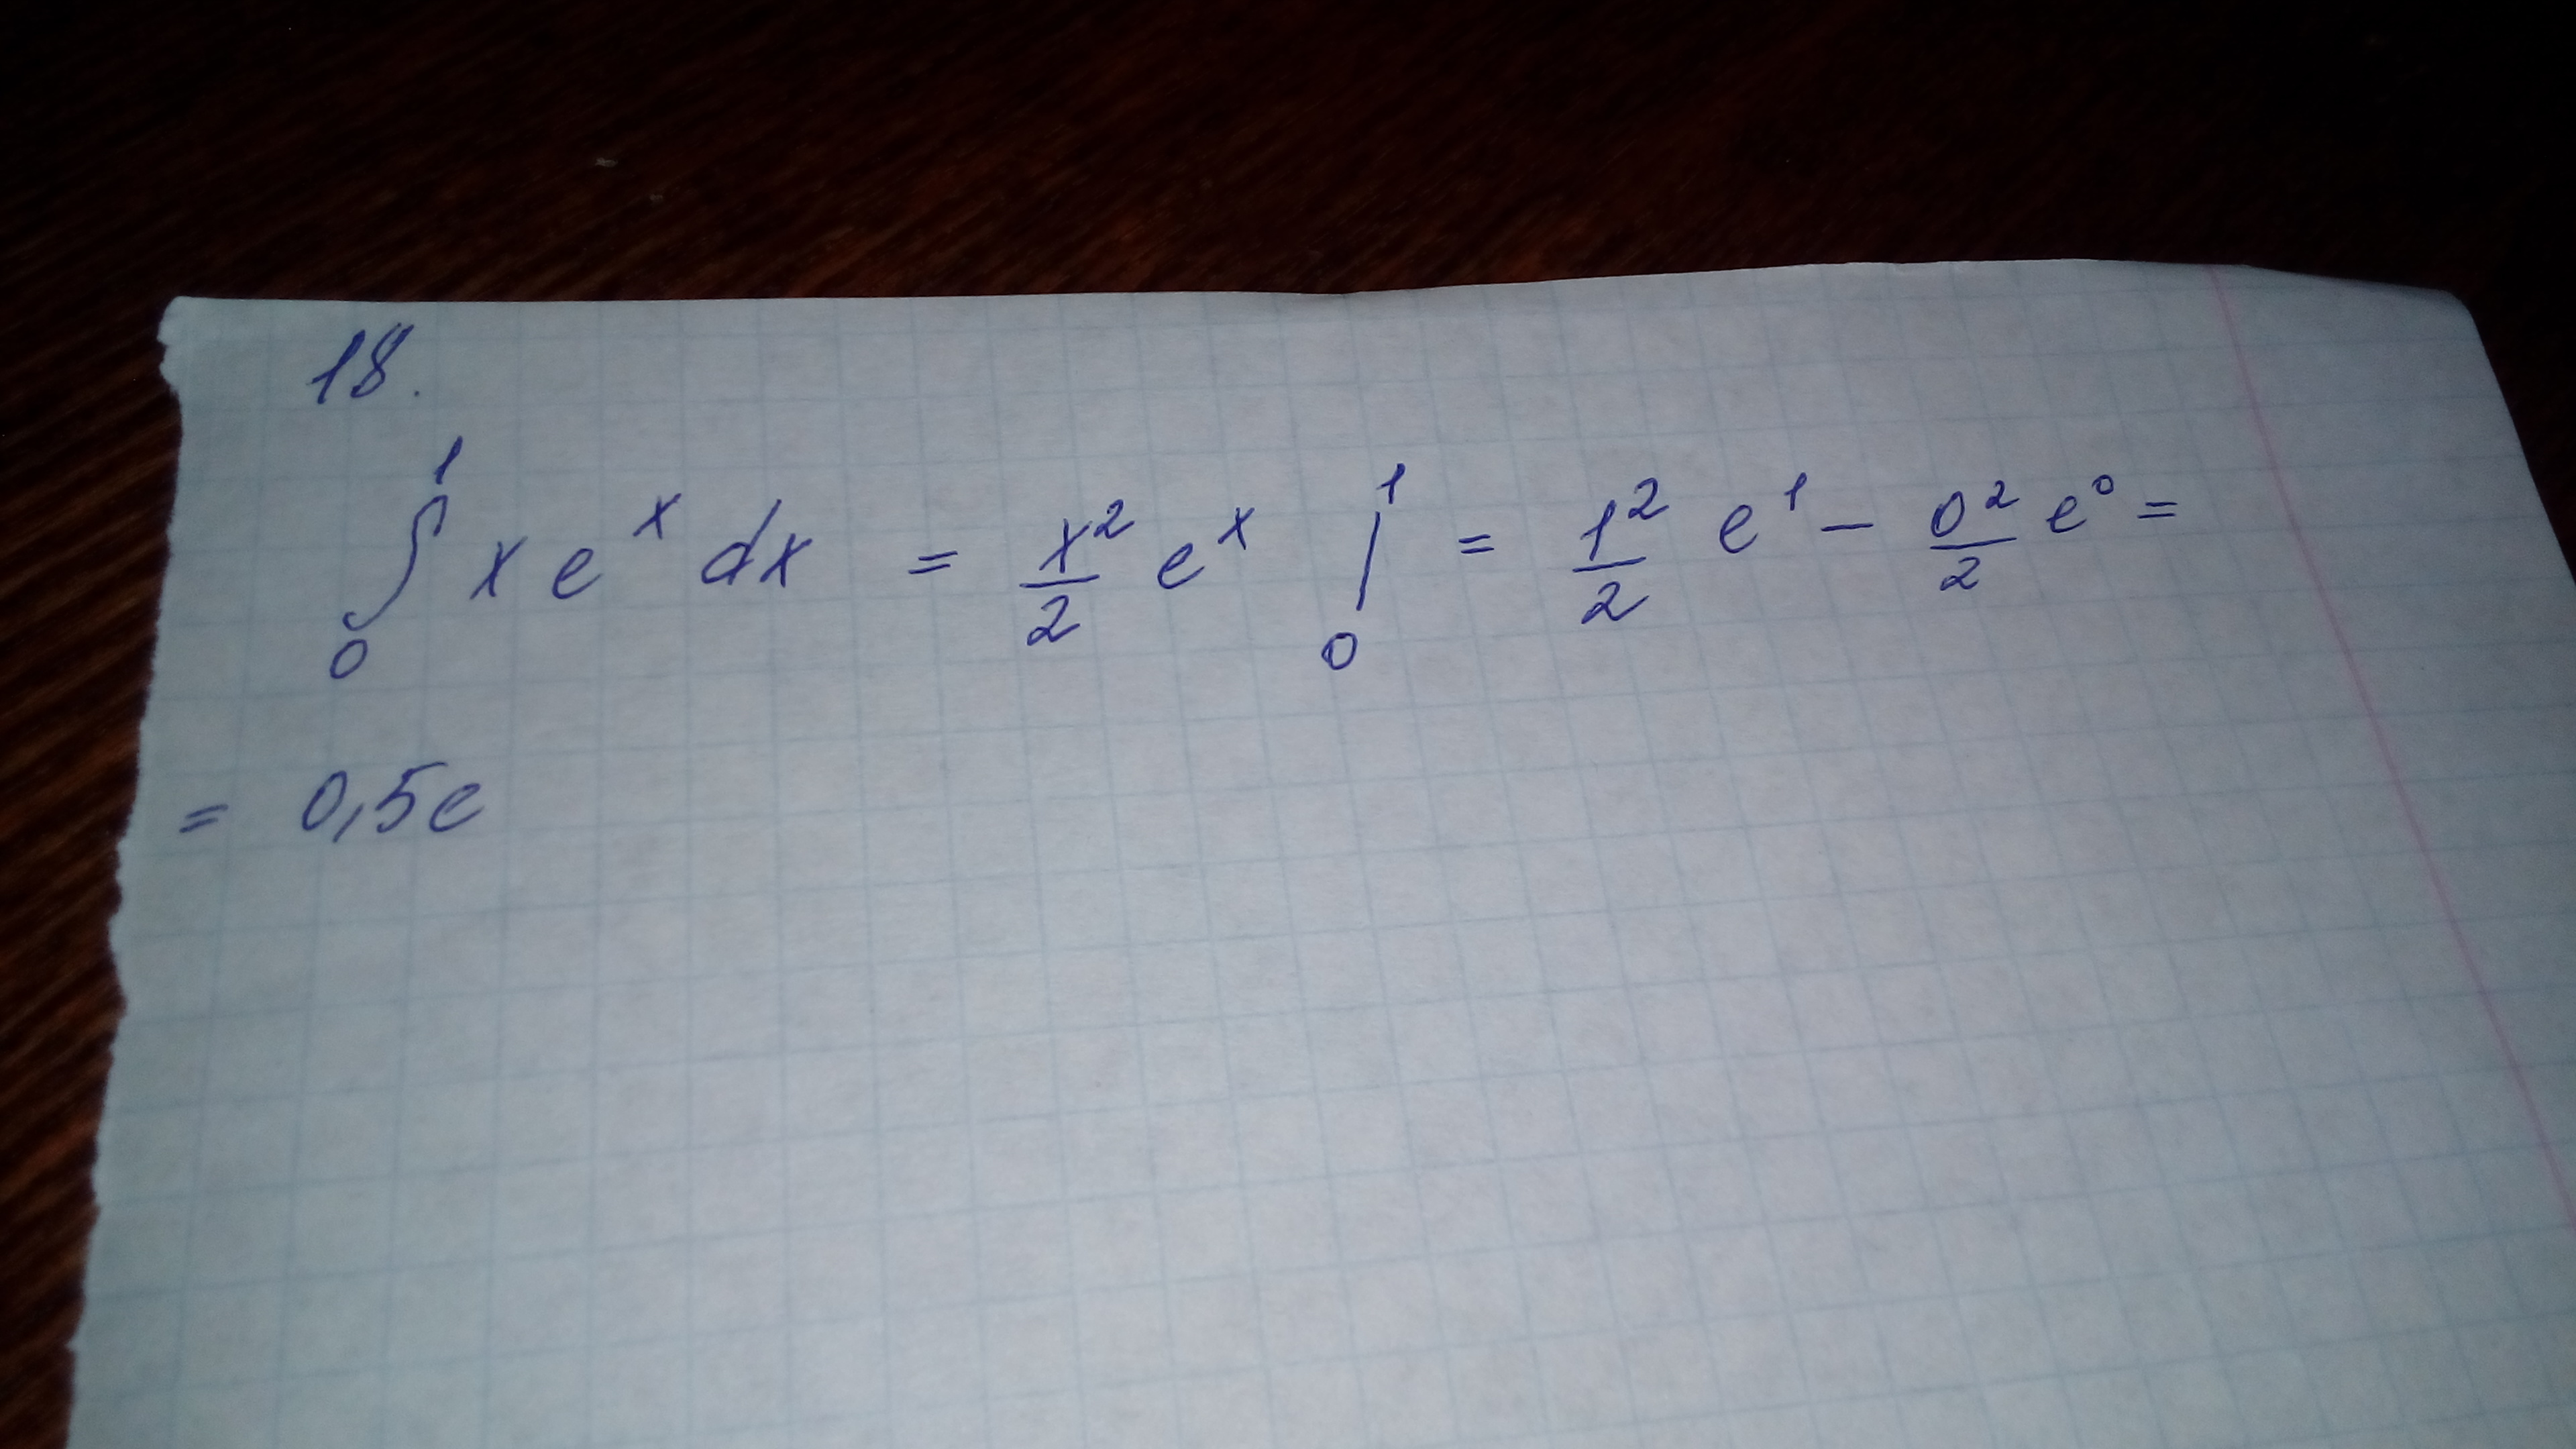 18.
∫₀¹ x eˣ dx = x²/2 eˣ |₀¹ = 1²/2 e¹ – 0²/2 e⁰ =
= 0,5e